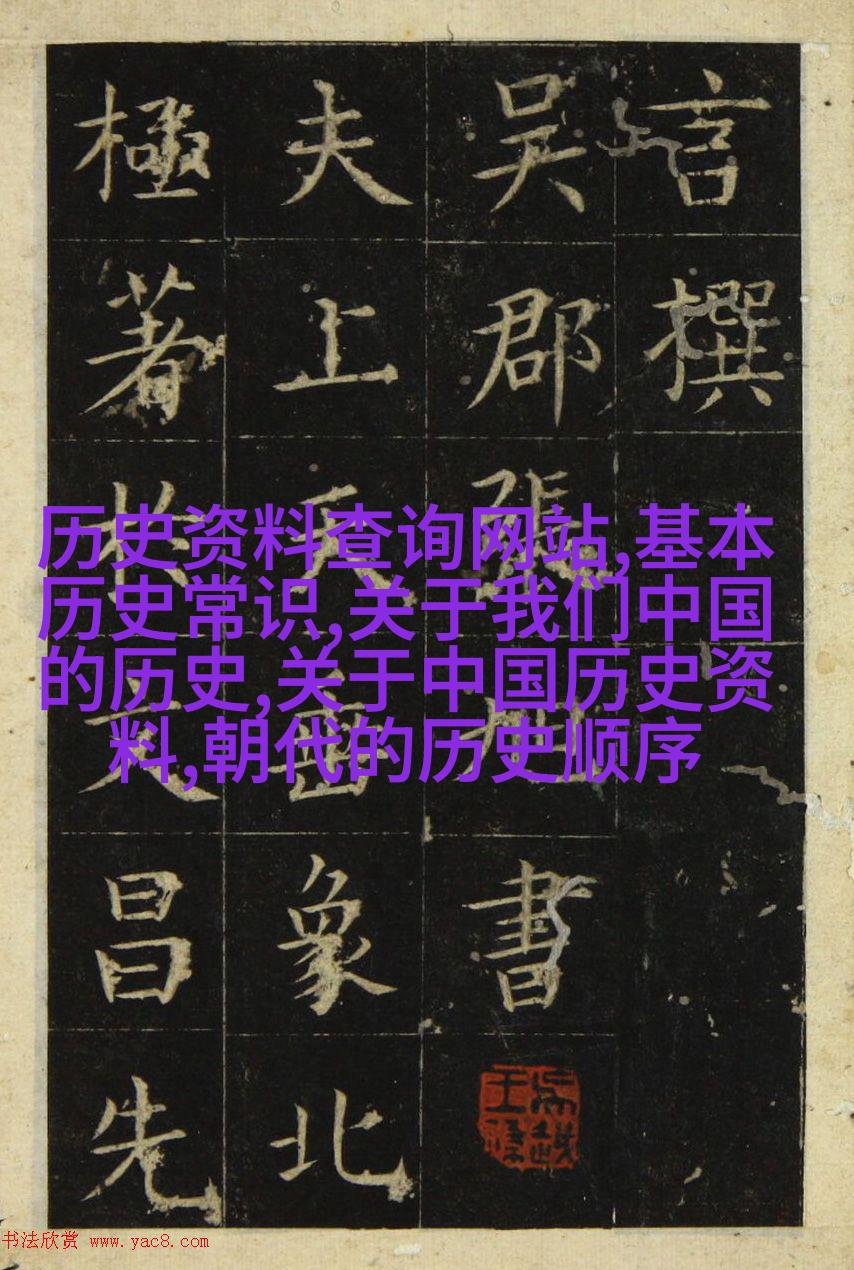 言撰
吴郡張旭書
夫上天垂象北
極著於文昌先
历史资料查询网站,基本
历史常识,关于我们中国
的历史,关于中国历史资
料,朝代的历史顺序
书法欣赏 www.yac8.com